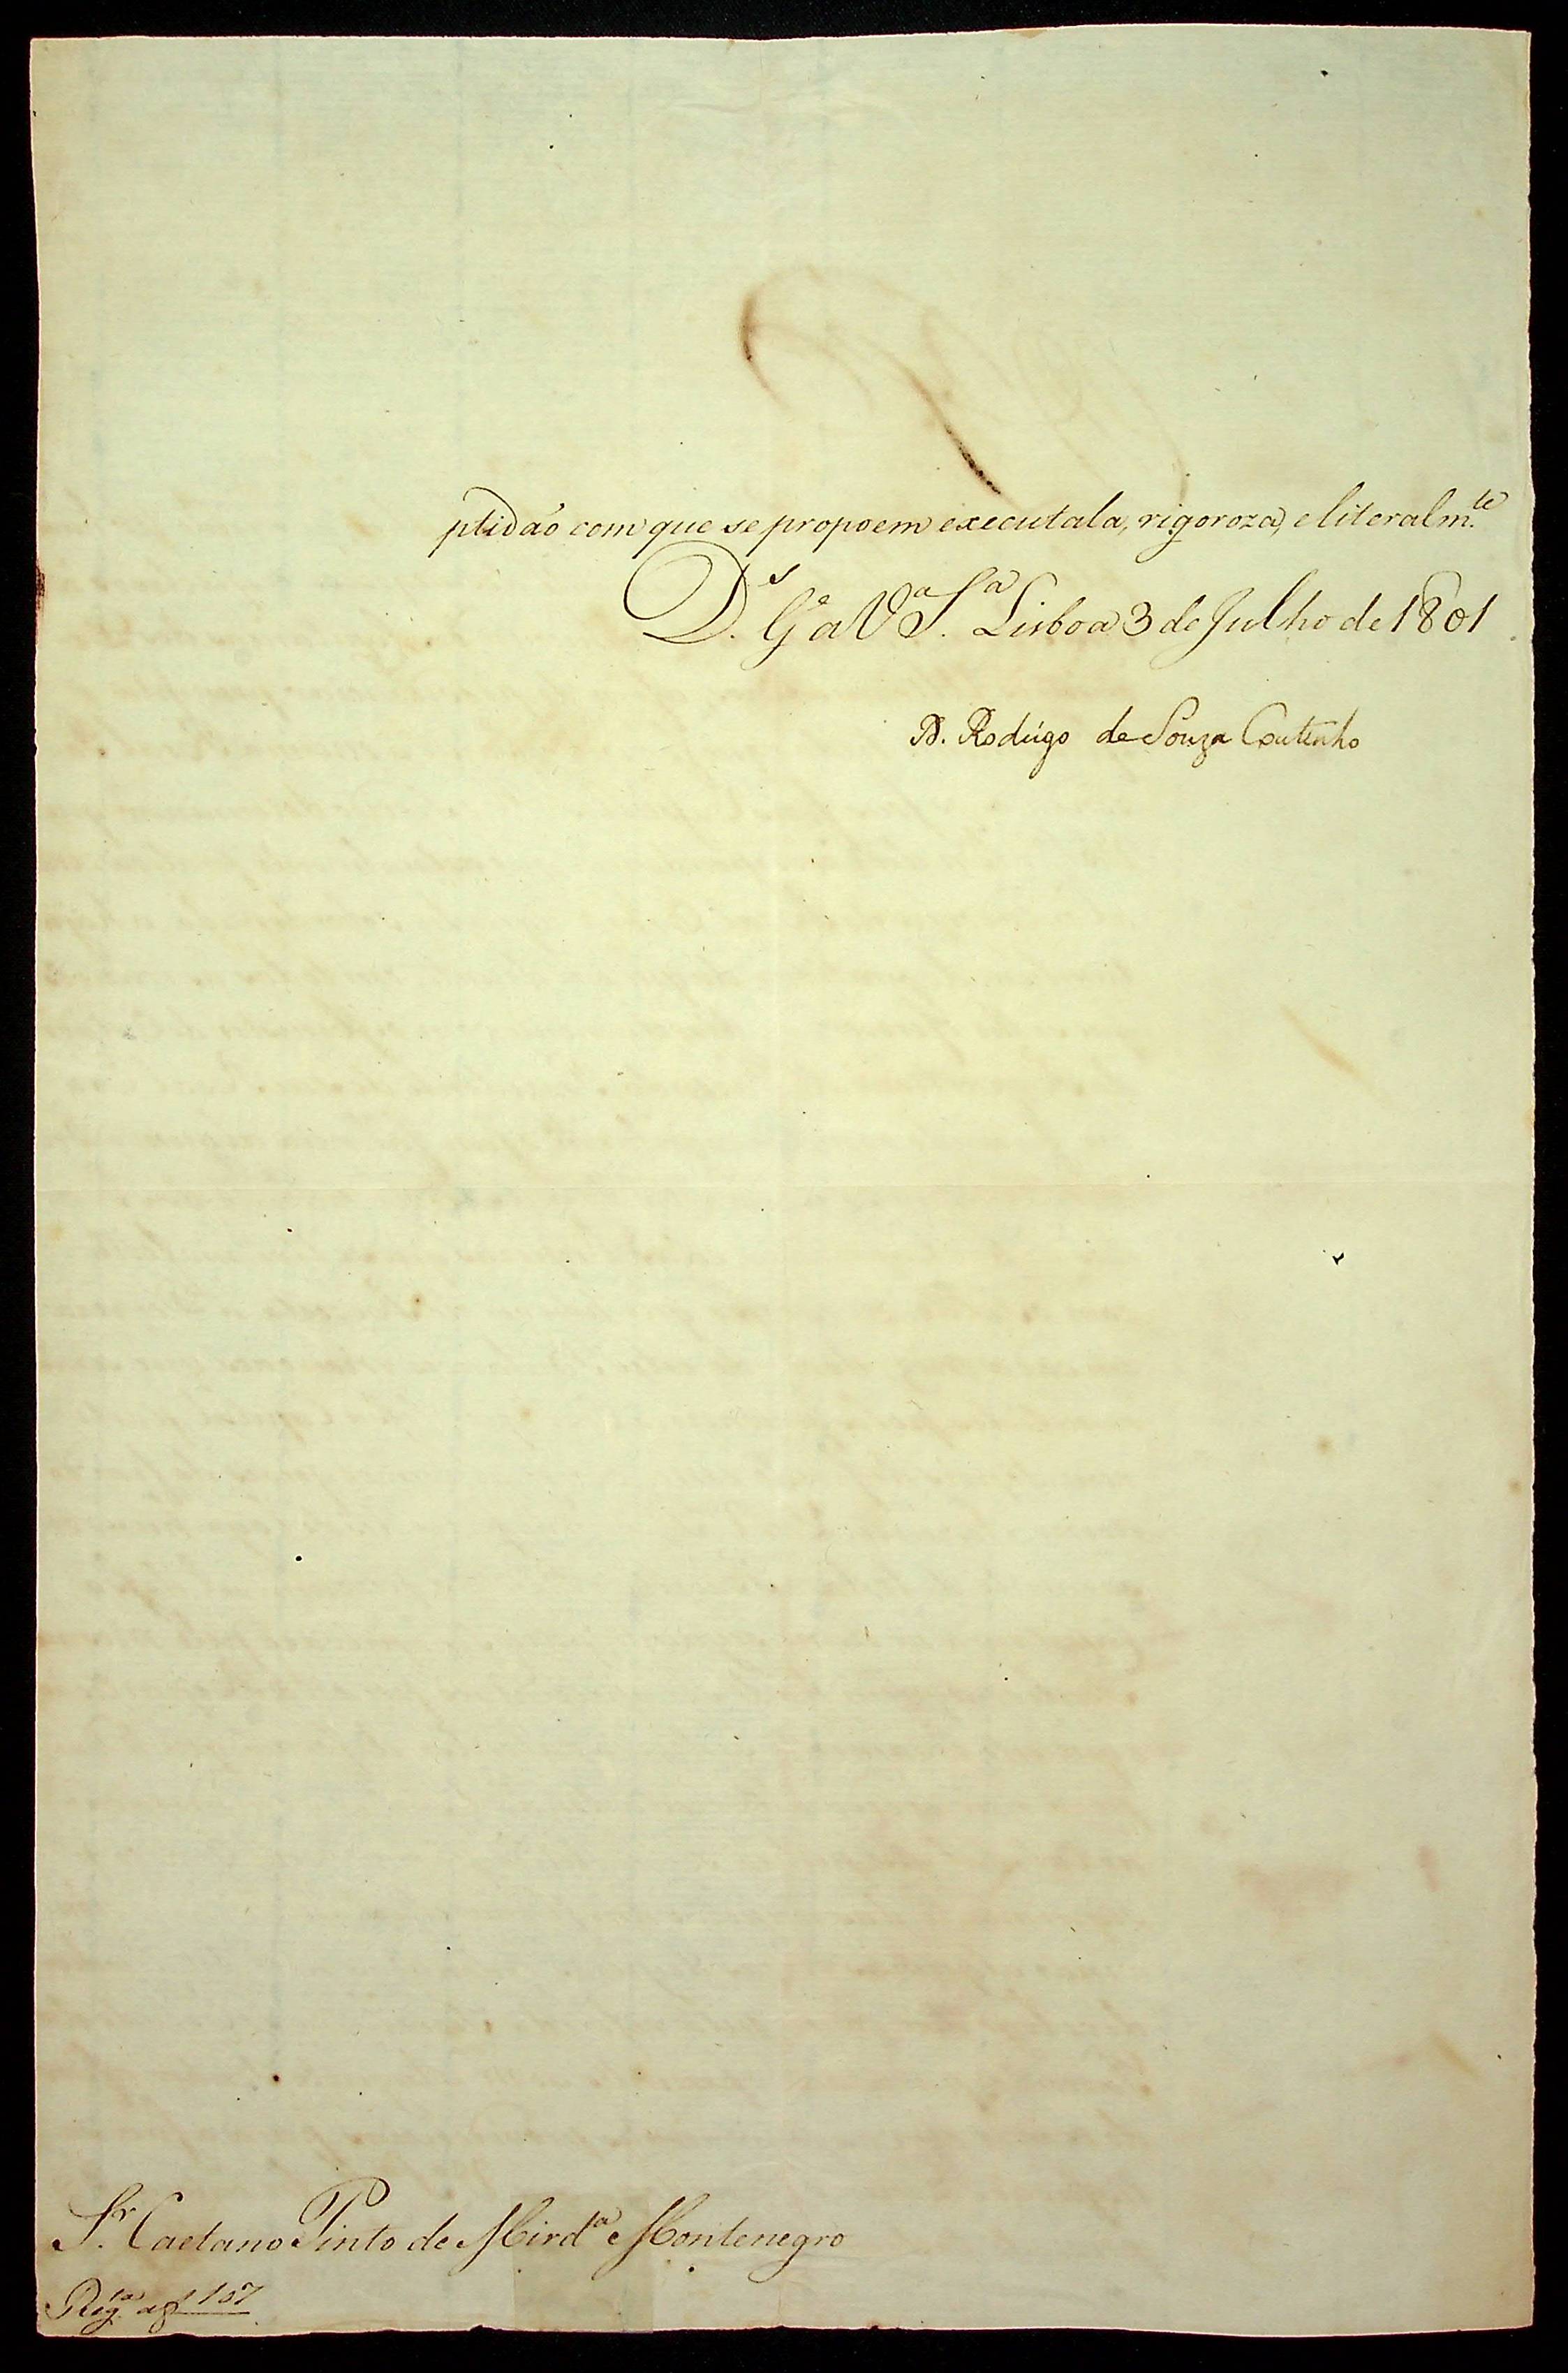 ptidaõ com que se propoem executala, rigoroza, e literalm.te
D.s G.e a V.a S.a Lisboa 3 de Julho de 1801
D. Rodrigo de Souza Coutinho
S.r Caetano Pinto de Mird.a Montenegro
Reg.da a f 107